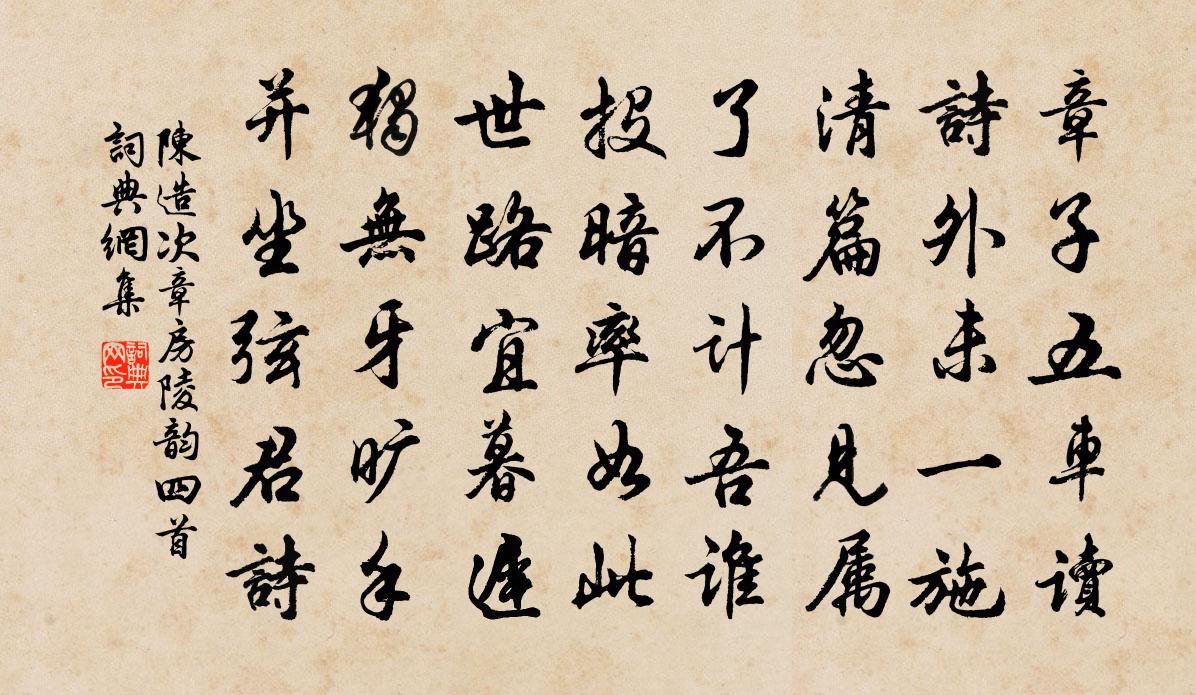 章子五車讀
詩外未一施
清篇忽見属
了不计吾谁
投暗率如此
世路宜暮遲
獨無牙旷手
并坐弦君詩
陳造次章房陵韵四首
詞典網集
詞典網印